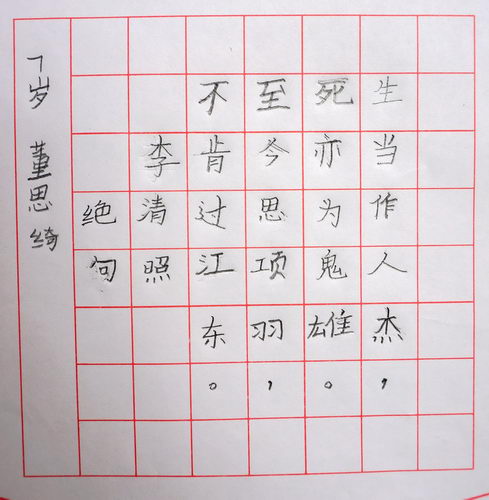 生当作人杰，
死亦为鬼雄。
至今思项羽，
不肯过江东。
李清照
绝句
7岁 董思绮